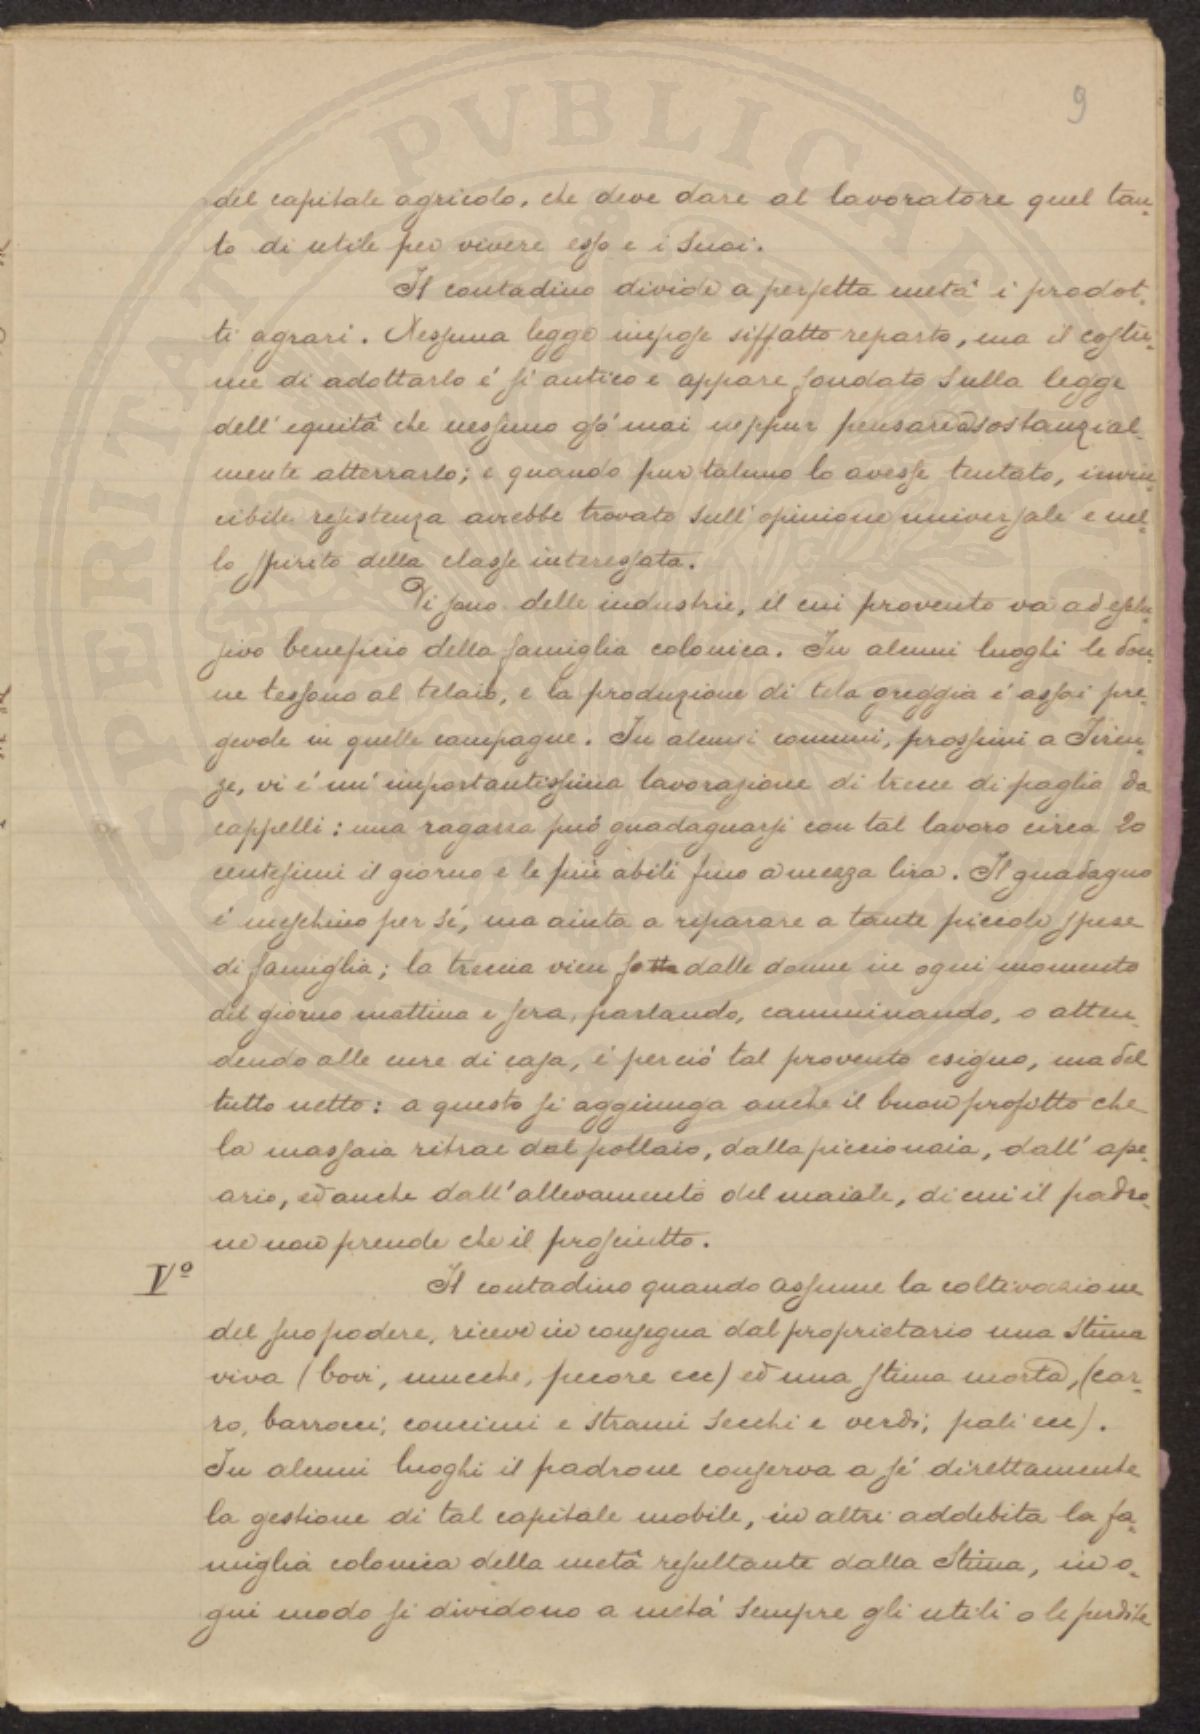 9
del capitale agricolo, che deve dare al lavoratore quel tan-
to di utile per vivere esso e i suoi.
Il contadino divide a perfetta metà i prodot-
ti agrari. Nessuna legge impose siffatto reparto, ma il costu-
me di adottarlo é sì antico e appare fondato sulla legge
dell' equità che nessuno osó mai neppur pensare a sostanzial-
mente atterrarlo; e quando pur taluno lo avesse tentato, invin-
cibile resistenza avrebbe trovato sull' opinione universale e nel-
lo spirito della classe interessata.
Vi sono delle industrie, il cui provento va ad esclu-
sivo beneficio della famiglia colonica. In alcuni luoghi le don-
ne tessono al telaio, e la produzione di tela greggia é assai pre-
gevole in quelle campagne. In alcuni comuni, prossimi a Firen-
ze, vi é un' importantissima lavorazione di trecce di paglia da
cappelli: una ragazza può guadagnarsi con tal lavoro circa 20
centesimi il giorno e le più abili fino a mezza lira. Il guadagno
é meschino per sé, ma aiuta a riparare a tante piccole spese
di famiglia; la treccia vien fatta dalle donne in ogni momento
del giorno mattina e sera, parlando, camminando, o atten-
dendo alle cure di casa, é perciò tal provento esiguo, ma del
tutto netto: a questo si aggiunga anche il buon profitto che
la massaia ritrae dal pollaio, dalla piccionaia, dall' api-
ario, ed anche dall' allevamento del maiale, di cui il padro-
ne non prende che il prosciutto.
Vº
Il contadino quando assume la coltivazione
del suo podere, riceve in consegna dal proprietario una stima
viva (bovi, mucche, pecore ecc) ed una stima morta, (car-
ro, barrocci, concimi e strami secchi e verdi; pali ecc).
In alcuni luoghi il padrone conserva a sé direttamente
la gestione di tal capitale mobile, in altri addebita la fa-
miglia colonica della metà resultante dalla Stima, in o-
gni modo si dividono a metà sempre gli utili o le perdite
PROSPERITATI PVBLICAE AVGENDAE